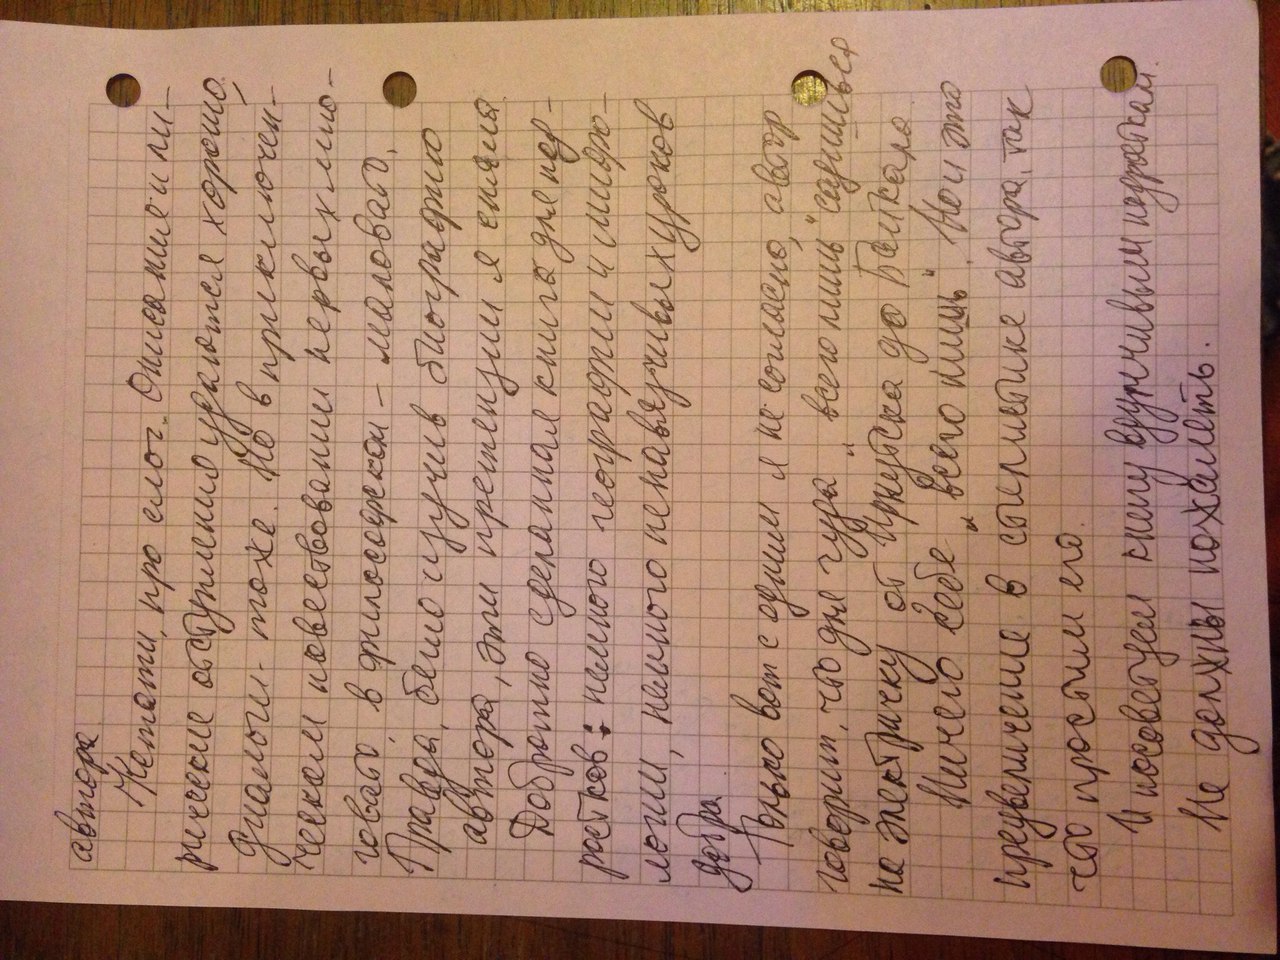 автора
Кстати, про слог. Описание и ли-
рические отступления удаются хорошо,
диалоги тоже. Но в приключен-
ческом повествовании первых мно-
говато, в философском – маловато.
Правда, бегло изучив биографию
автора, эти претензии я сняла
Добротно сделанная книга для под-
ростков: немного географии и мифо-
логии, немного ненавязчивых уроков
добра
Только вот с одним я не согласна, автор
говорит, что для чуда „всего лишь" садишься
на электричку от Иркутска до Байкала
Ничего себе „всего лишь". Но и это
преувеличение в стилистике автора, так
что простим его.
И посоветуем книгу вдумчивым подросткам.
Не должны пожалеть.